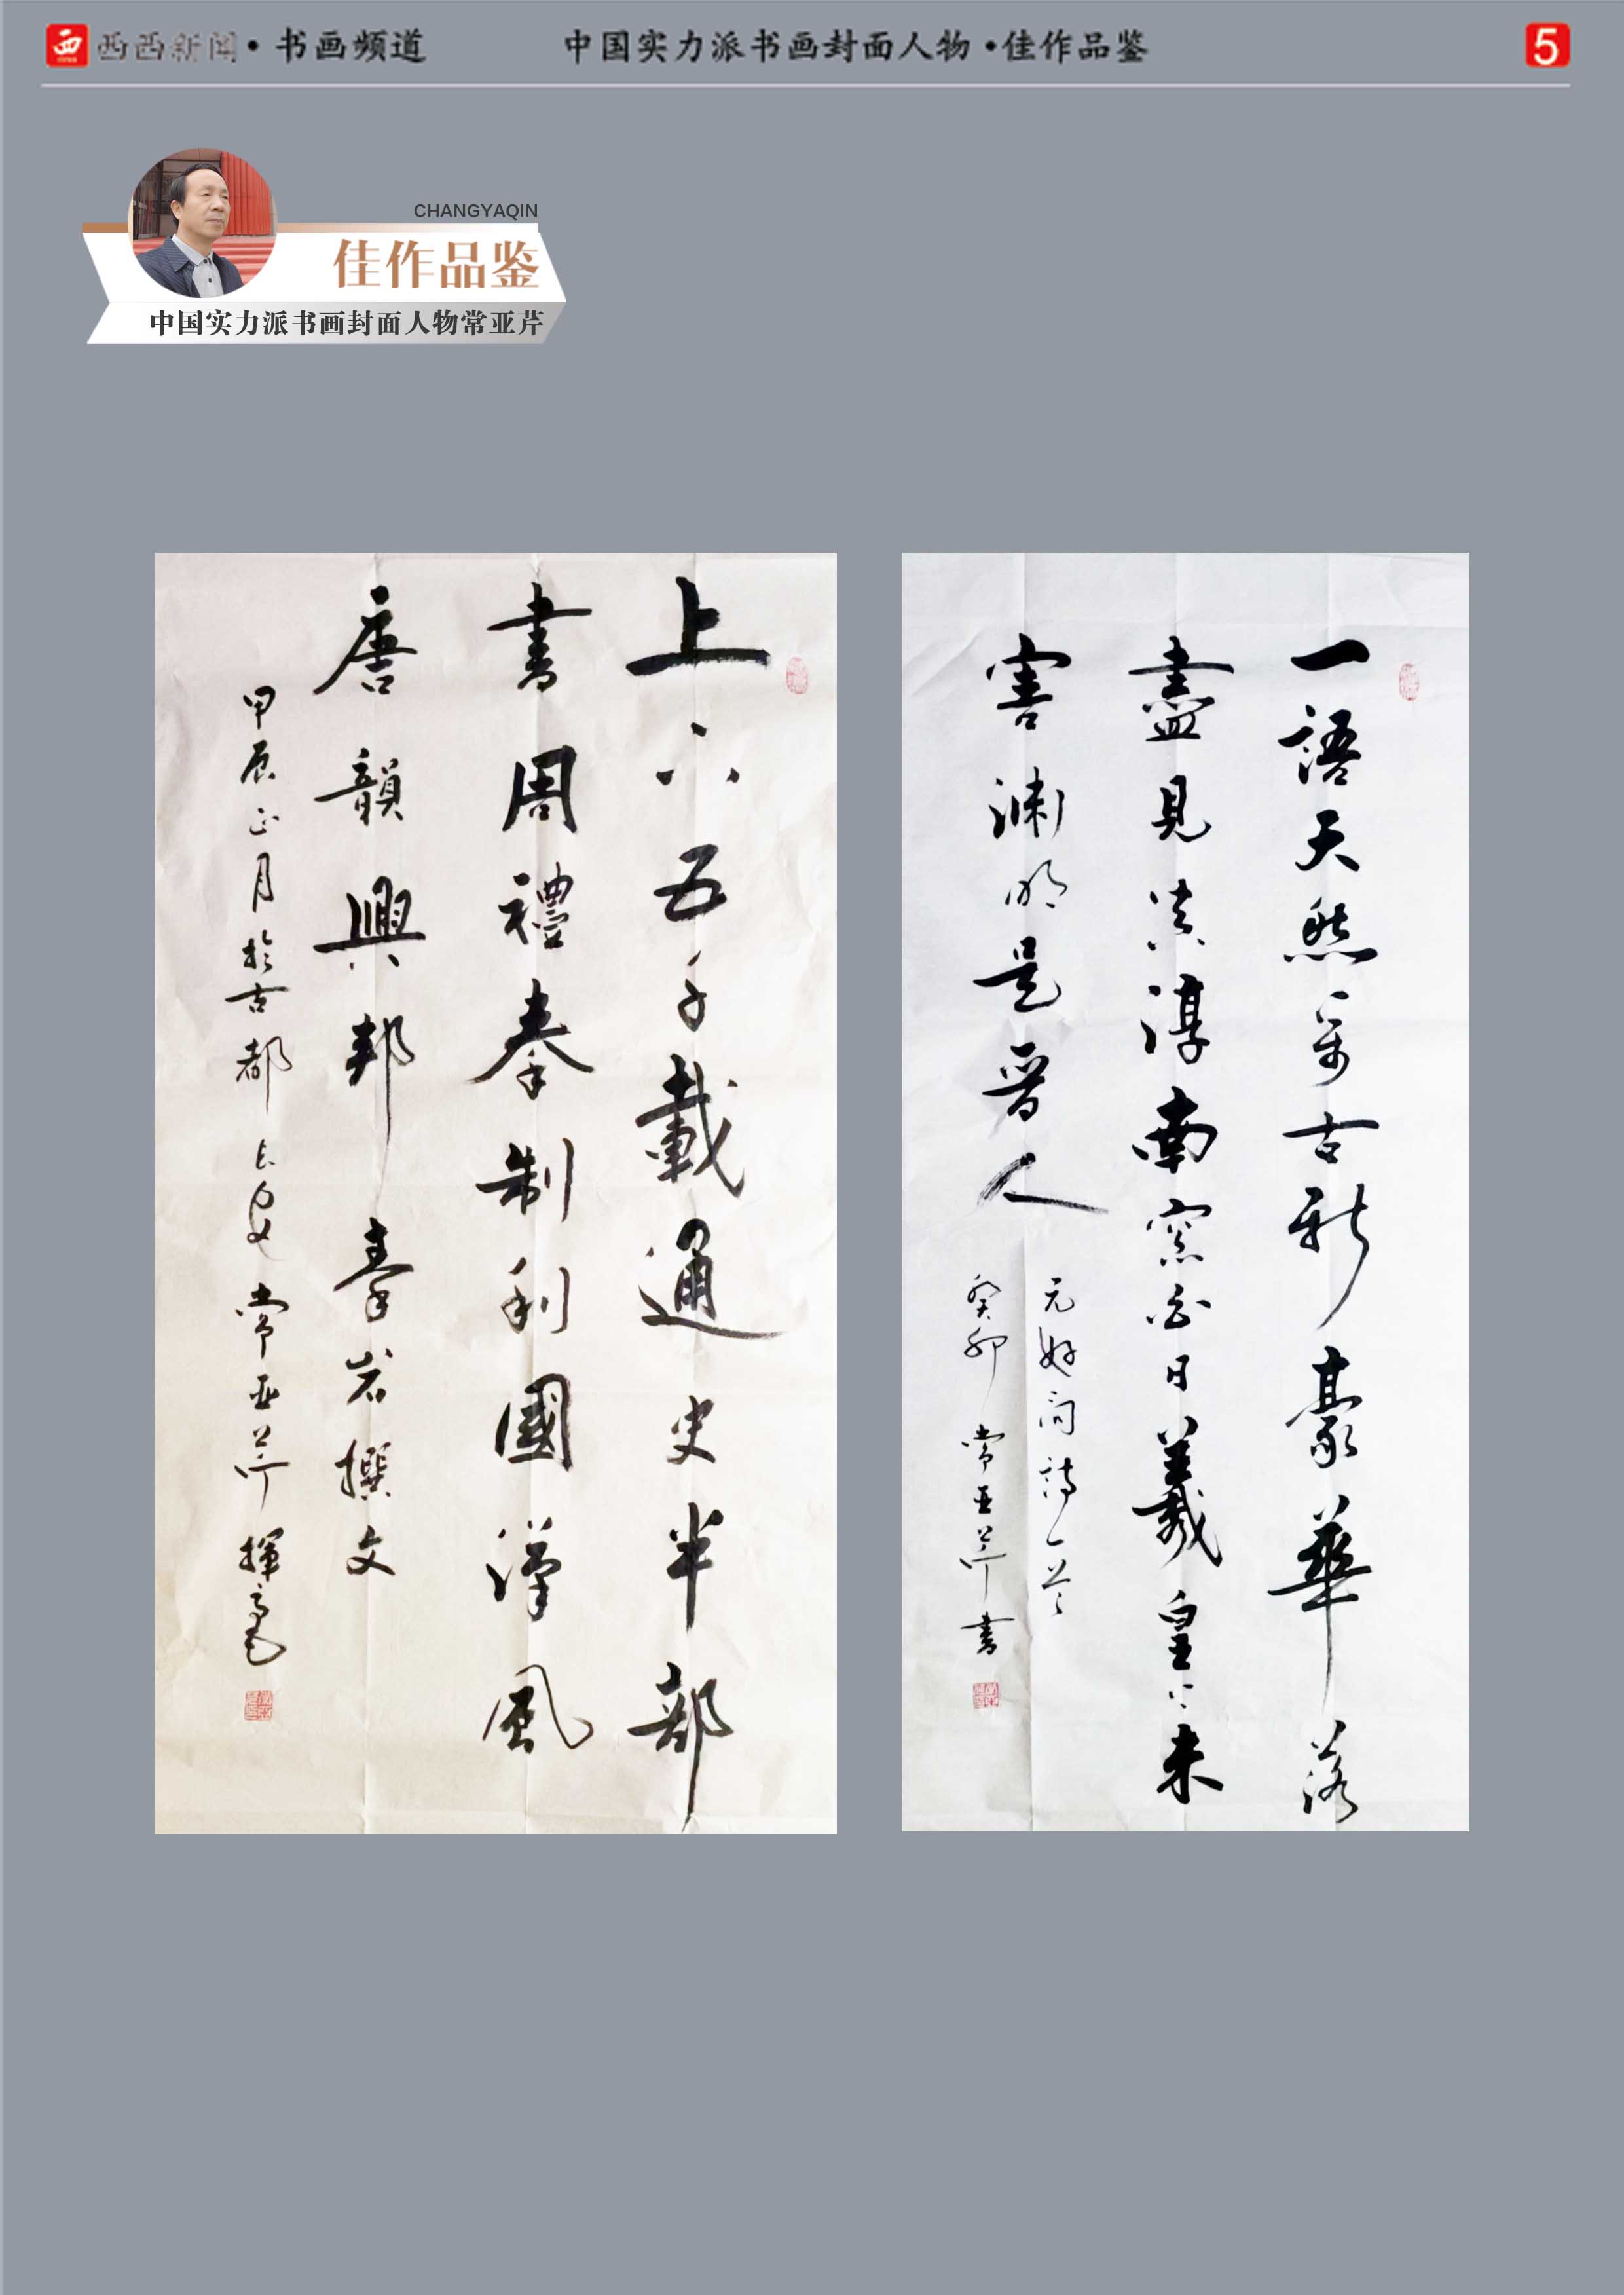 西西新闻•书画频道
中国实力派书画封面人物•佳作品鉴
5
CHANGYAQIN
佳作品鉴
中国实力派书画封面人物常亚芹
上下五千載通史半部
書周禮秦制利國漢風
唐韻興邦 秦岩撰文
甲辰正月於古都長安常亚芹揮毫
一語天然萬古新豪華落
盡見真淳南窓白日羲皇上未
害渊明是晉人
元好问詩一首
癸卯常亚芹書